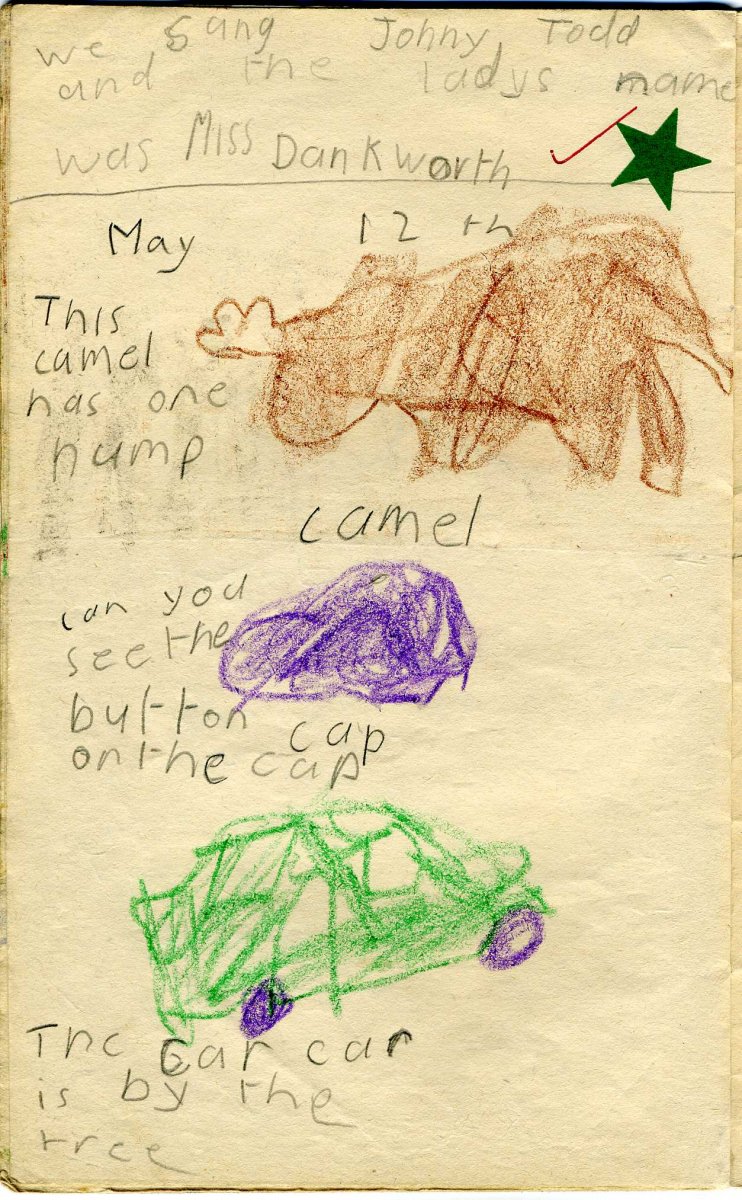 we sang Johny Todd
and the ladys name
was Miss Dankworth
May 12th
This
camel
has one
hump
camel
can you
see the
button cap
on the cap
The car car
is by the
tree